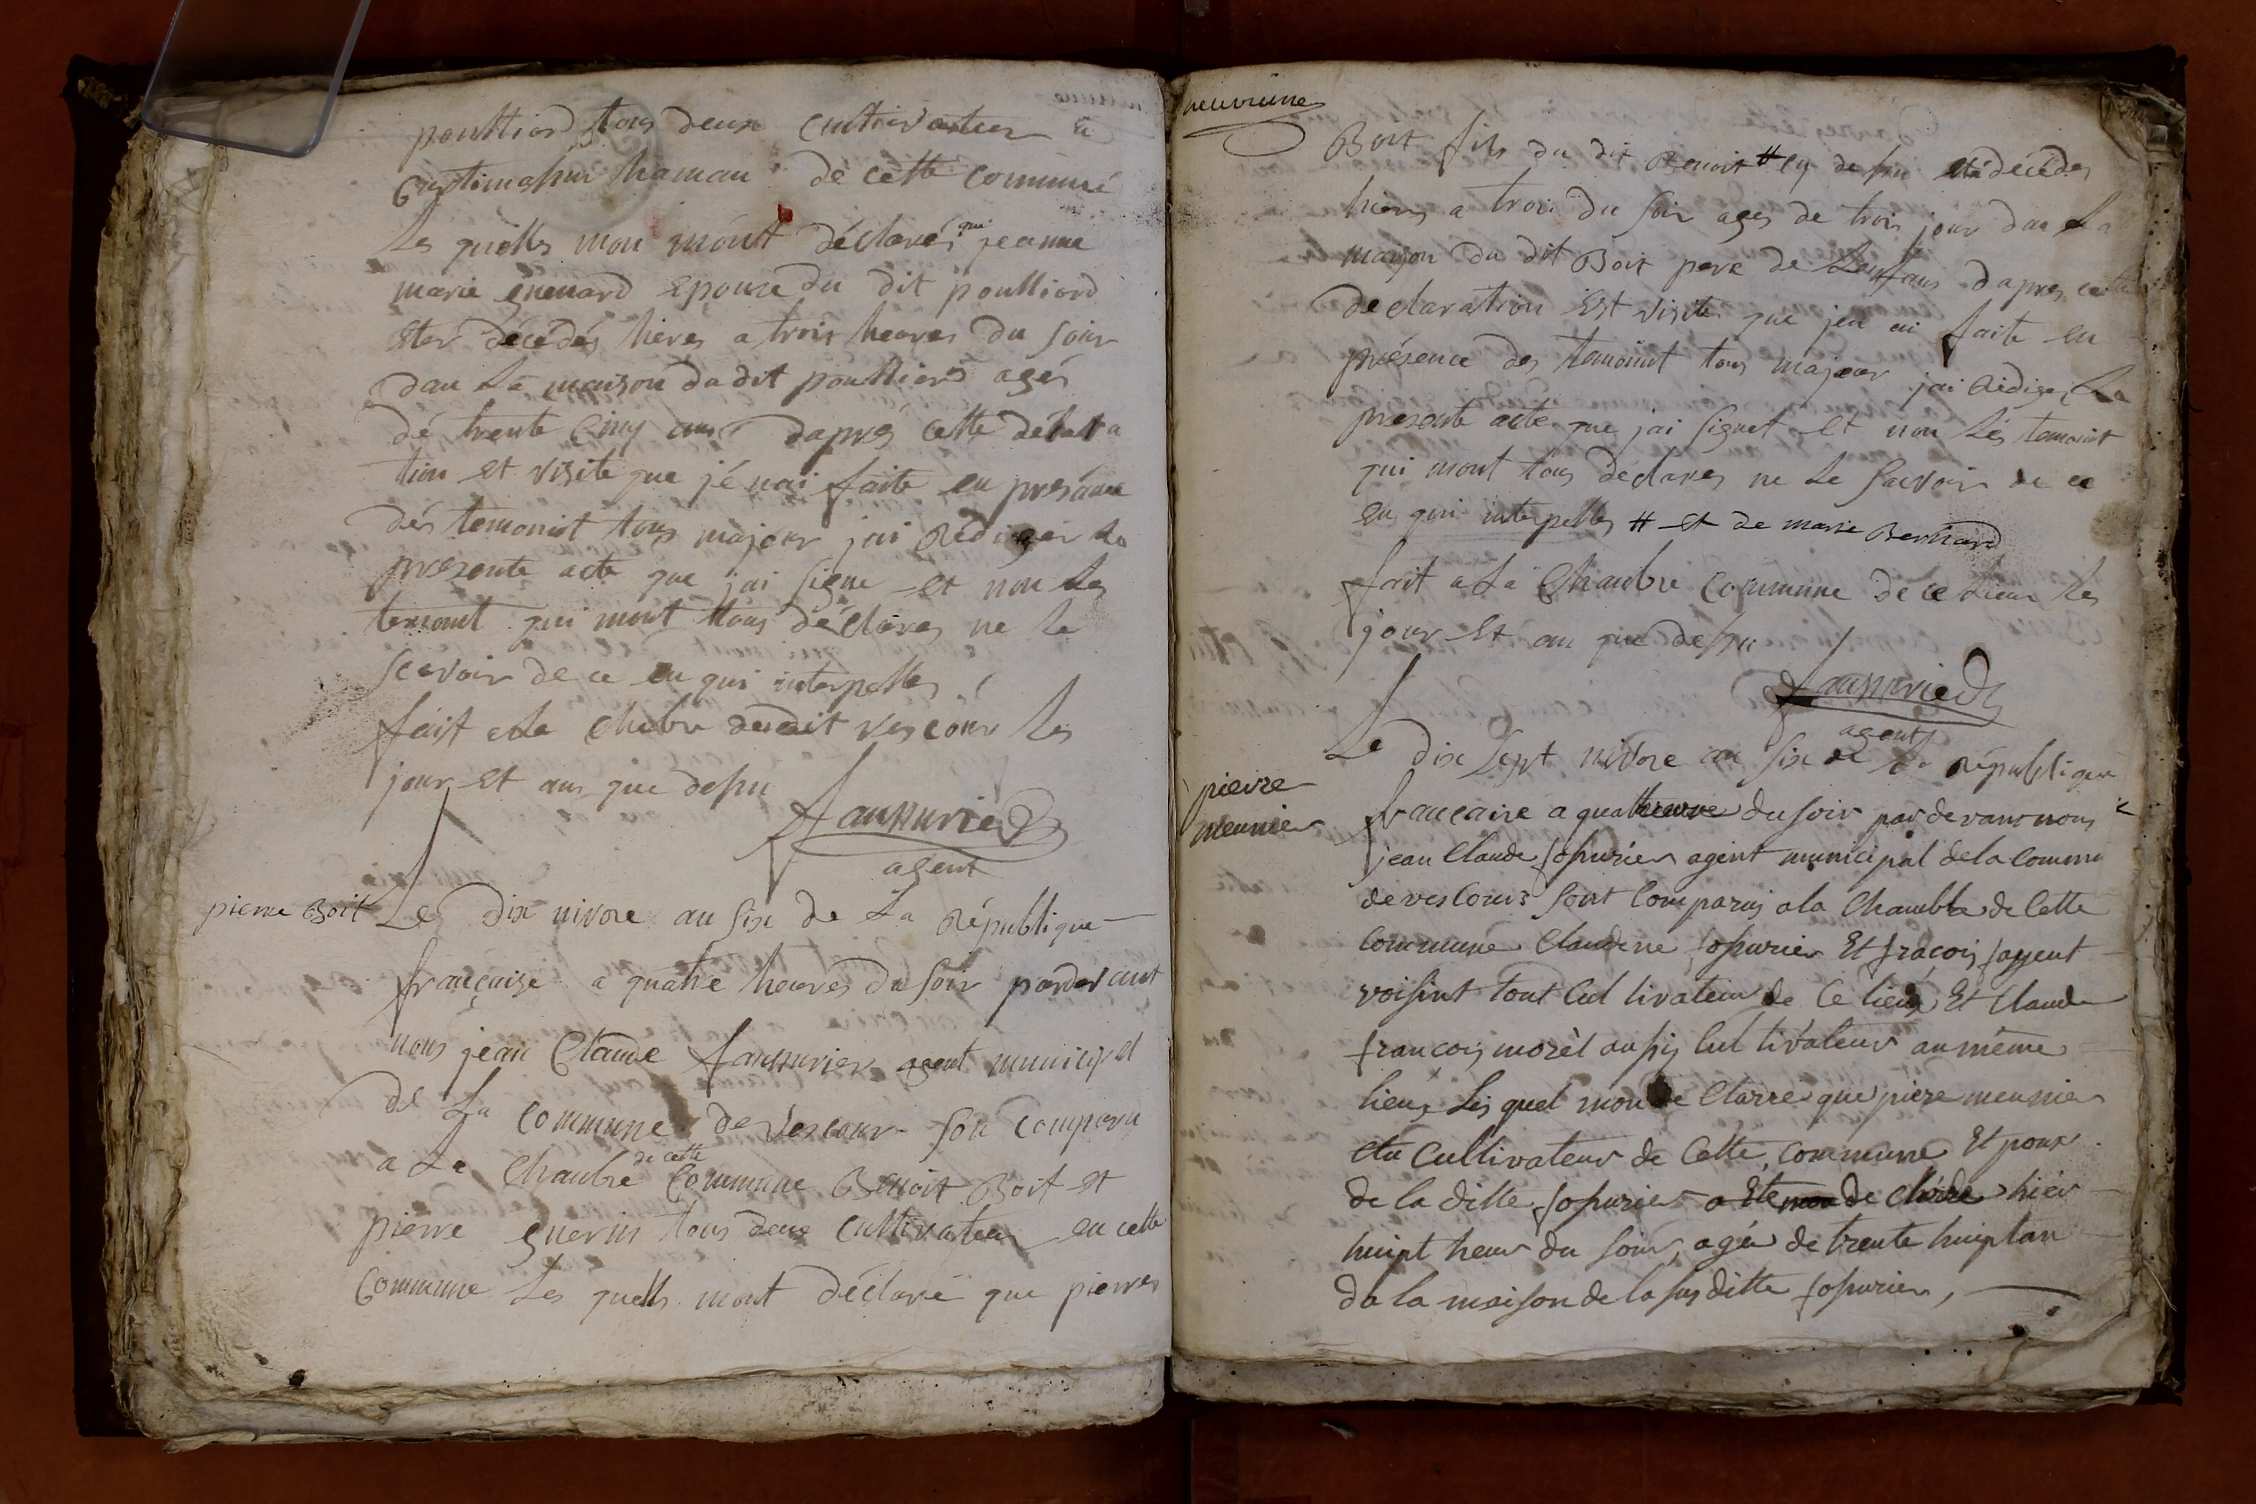 poulliord tous deux cultivateur a
hamau de cette commune
Les quells mon mont déclarés que jeanne
marie guenard epouse du dit poulliord
Eter décédés hières a trois heures du soir
dan La maison du dit poulliord agés
dé trente cinq ans dapres cette declara
tion et visite que jé nai faite en presance
dés temoniot tous majour jai Rédiger La
presente acte que jai signe et non Les
temont qui mont tous déclares ne le
scavoir de ce en qui interpelles
fait a La chabre dudit vescour Les
jour et ans que dessu
faussurier
agent
pierre Boit
Le dix nivose an six de La République
française a quatre heures du soir pardevant
nous jean Claude faussurier agent municipal
de La commune de vescour son comparu
a La chambre de cette commune Benoit Boit et
pierre guerin tous deux cultivateur en cette
commune Les quells mont déclaré que pierres
neuvieme
Boit fils du dit Benoit # cy dessu eté décédes
hieres a trois du soir ages de trois jour dan La
maison du dit Boit pere de Lenfans dapres cette
declaration Est visite que jen ai faite en
présence des temoint tous majeur jai Rédiger La
presente acte que jai signet et non Lés temoint
qui mont tous declares ne Le Scavoir de ce
en qui interpelles # et de marie Bernard
fait a La Chambre commune de ce Lieux Les
jour et an que dessu
faussurier
agent
pierre
meunier
Le dix sept nivose an six de La République
francaise a quatreheure du soir pardevant nous
jean Claude fossurier agent municipal de la commu
de vescours sont comparus a la chambbre de cette
commune Claudine fossurier Et fraçois sayent
voisint tout cul tivateur de ce lieux Et Claude
francois morèl aussy cul tivateur au même
lieux Les quel mon de clarre que piere meunier
etu cultivateur de cette commune Et poux
de la ditte fossurier a Ete mon de claide hier
huipt heur du soir agée de trente huiptan
da la maison de la susditte fossurier,